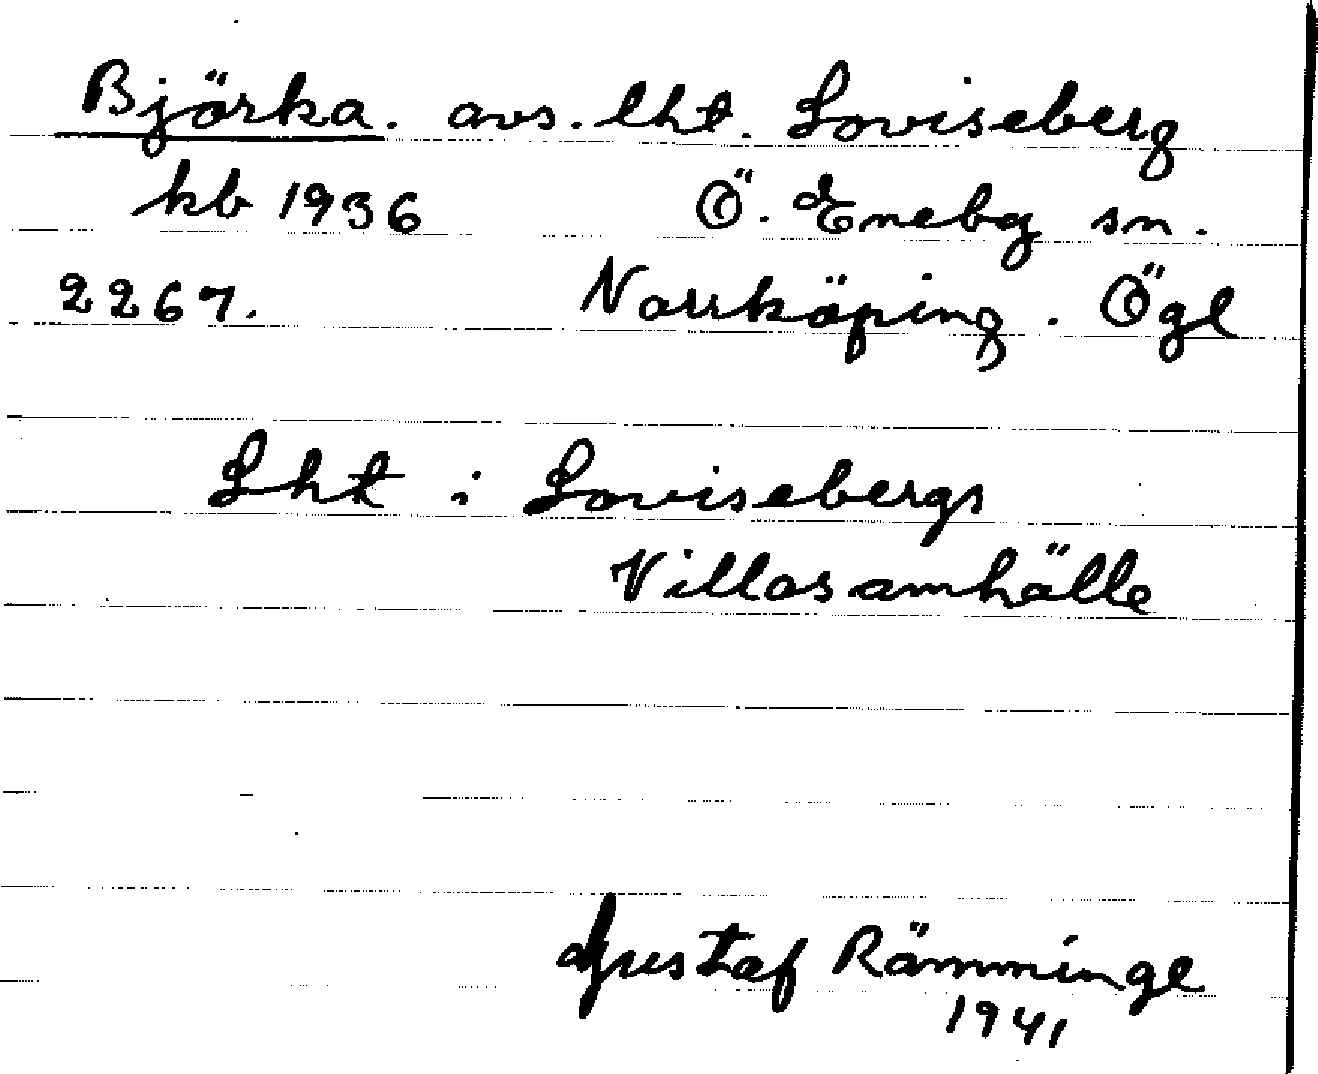 Björka. avs. lht. Loviseberg
kb 1936 Ö. Eneby sn.
2267. Norrköping. Ögl
Lht i Lovisebergs
Villasamhälle
Gustaf Rämminge
1941